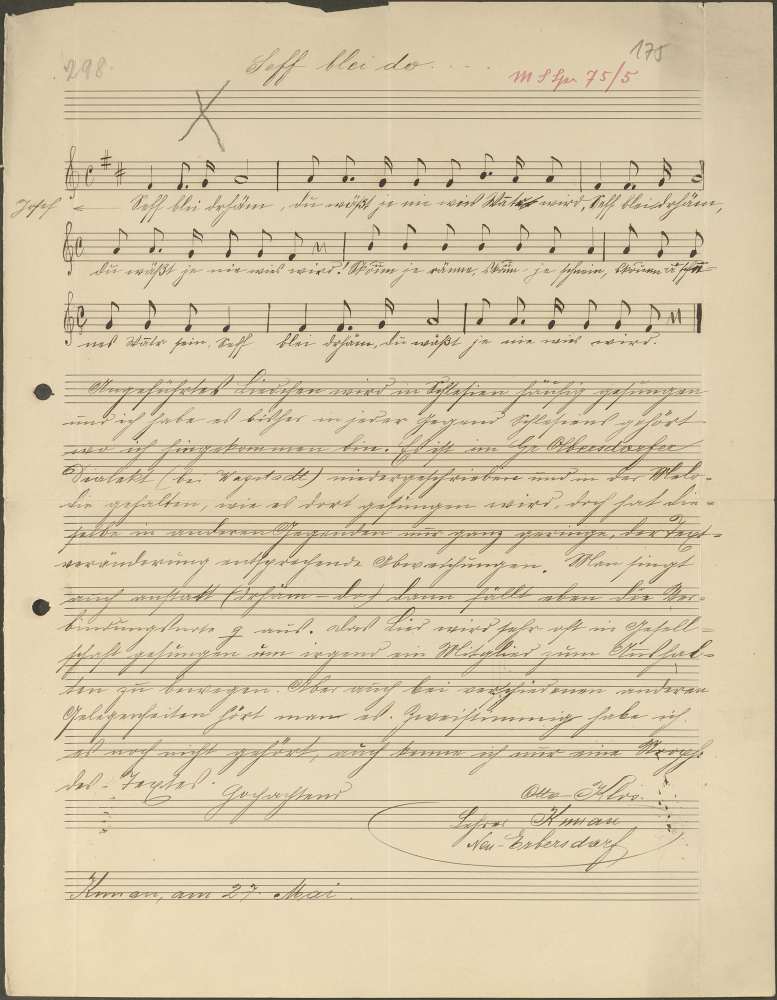 298.
Seff blei do. . . .
175
M S Sp. 75/5
Josef
Seff blei drhäm, du wäßt je nie wies Watr wird, Seff blei drhäm,
du wäßt je nie wies wird! Koum je ränne, koum je schnein, koum a schö=
nes Watr sein. Seff blei drhäm, du wäßt je nie wies wird.
Angeführtes Liedchen wird in Schlesien häufig gesungen
und ich habe es bisher in jeder Gegend Schlesiens gehört
wo ich hingekommen bin. Es ist im Gr. Olbersdorfer
Dialekt (bei Wagstadt) niedergeschrieben und in der Melo=
die gehalten, wie es dort gesungen wird, doch hat die=
selbe in anderen Gegenden nur ganz geringe, der Text=
veränderung entsprechende Abweichungen. Man singt
auch anstatt (drhäm - do) dann fällt eben die Ver=
bindungsnote g aus. Das Lied wird sehr oft in Gesell=
schaft gesungen um irgend ein Mitglied zum Aushal=
ten zu bewegen. Aber auch bei verschiedenen anderen
Gelegenheiten hört man es. Zweistimmig habe ich
es noch nicht gehört, auch kenne ich nur eine Stroph.
des Textes.
Hochachtend
Otto
Lehrer
Neu-Erbersdorf
am 27. Mai.